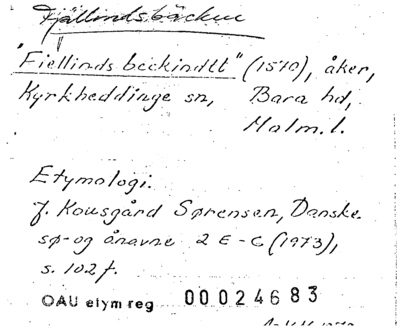 Fjällindsbäcken
"Fiellinds beckindtt" (1570), åker,
Kyrkheddinge sn, Bara hd,
Malm. l.
Etymologi.
J. Kousgård Sørensen, Danske
sø- og ånavne 2 E-G (1973),
s. 102 f.
OAU etym reg 00024683